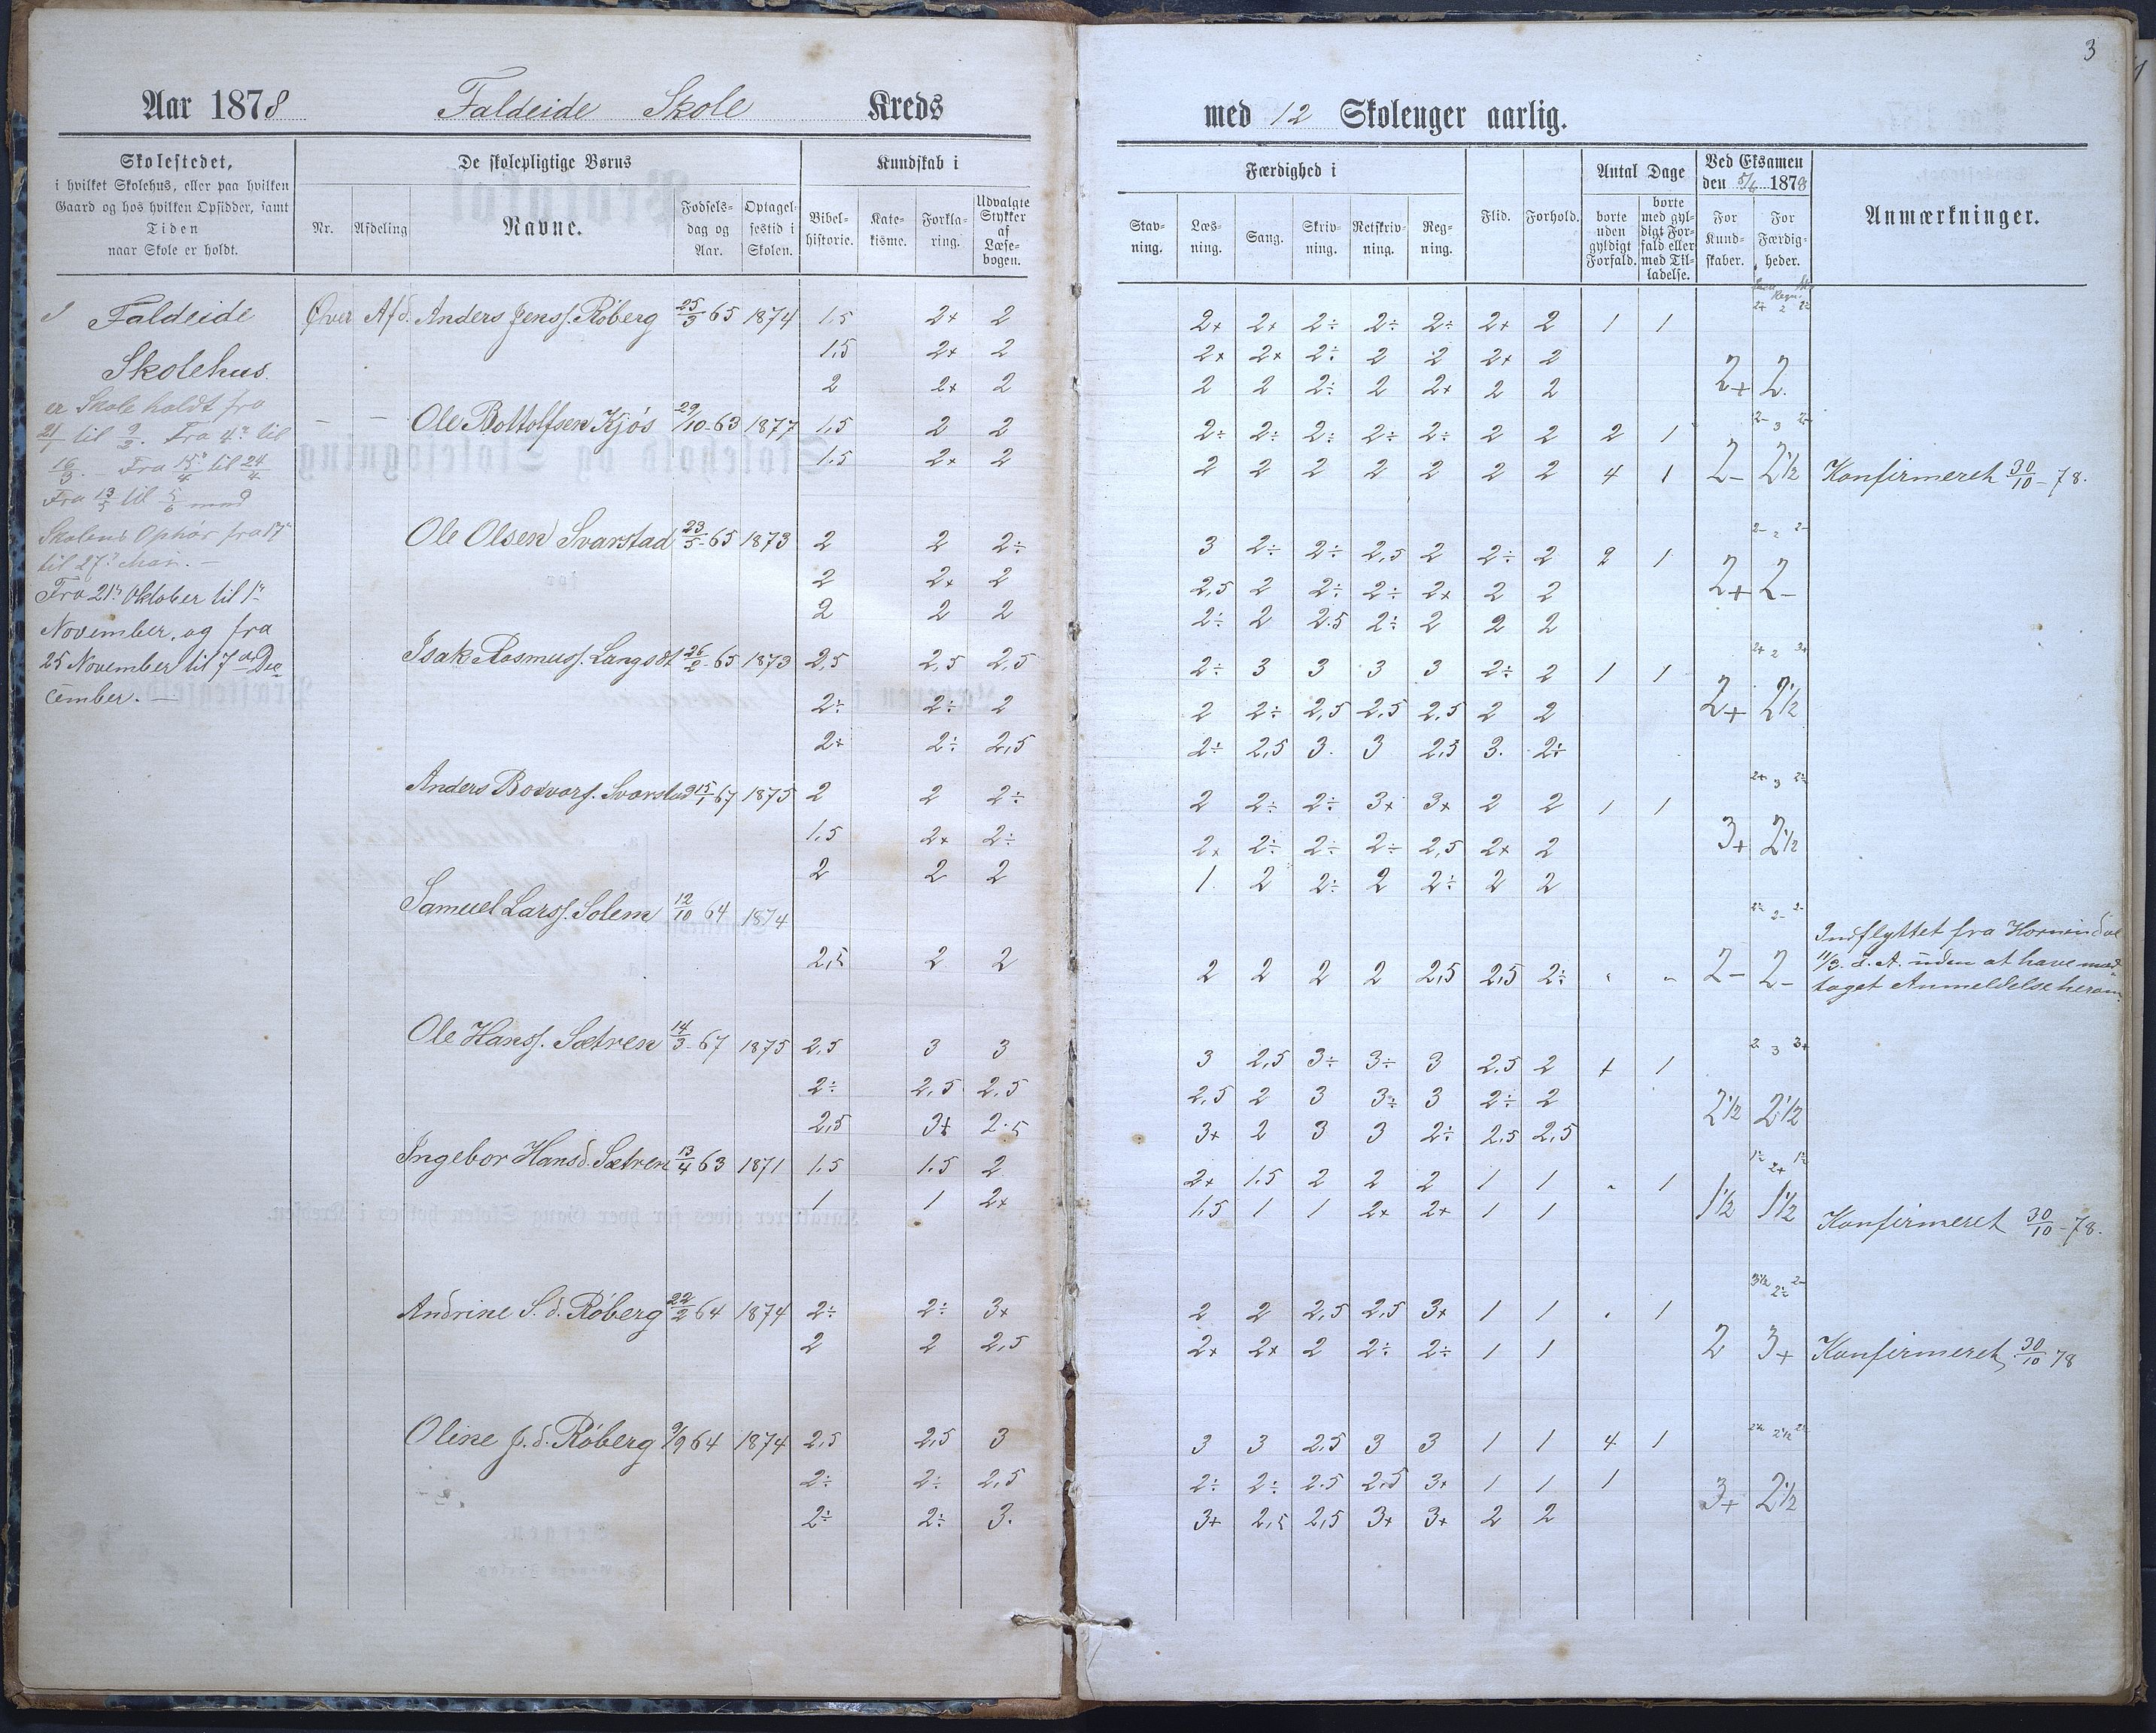 3
Aar 1878 Faldeide Skole Kreds
med 12 Skoleuger aarlig.
Skolestedet,
i hvilket Skolehus, eller paa hvilken
Gaard og hos hvilken Opsidder, samt
Tiden
naar Skole er holdt.
De skolepligtige Børns
Nr.
Afdeling
Navne.
Fødsels-
dag og
Aar.
Optagel-
sestid i
Skolen.
Kundskab i
Bibel-
historie.
Kate-
kisme.
Forkla-
ring.
Udvalgte
Stykker
af
Læse-
bogen.
Færdighed i
Stav-
ning.
Læs-
ning.
Sang.
Skriv-
ning.
Retskriv-
ning.
Reg-
ning.
Flid.
Forhold.
Antal Dage
borte
uden
gyldigt
Forfald.
borte
med gyl-
digt For-
fald eller
med Til-
ladelse.
Ved Eksamen
den 5/6 1878
For
Kund-
skaber.
For
Færdig-
heder.
Anmærkninger.
I Faldeide
Skolehus.
er Skole holdt fra
21/1 til 9/2. Fra 4de til
16/3. Fra 15/4 til 24/4
Fra 13/5 til 5/6 med
Skolens Ophør fra 17de
til 27de Mai. —
Fra 21de Oktober til 1ste
November, og fra
25 November til 7de De-
cember. —
Øver Afd. Anders Jenss. Røberg 25/3 65 1874 1,5 2+ 2 2+ 2+ 2÷ 2÷ 2÷ 2+ 2 1 1
1,5 2+ 2 2+ 2+ 2÷ 2 2 2+ 2
2 2+ 2 2 2 2÷ 2 2+ 2 2 2+ 2.
— — Ole Bottolfsen Kjós 29/10-63 1877 1,5 2 2 2÷ 2÷ 2÷ 2÷ 2÷ 2 2 2 1
1.5 2+ 2 2 2 2 2 2 2 2 4 1 2- 2½ Konfirmeret 30/10-78.
Ole Olsen Svarstad 23/5-65 1873 2 2 2÷ 3 2÷ 2÷ 2,5 2 2÷ 2 2 1
2 2+ 2 2,5 2 2÷ 2÷ 2+ 2 2 2+ 2-
2 2 2 2÷ 2 2.5 2÷ 2 2 2
Isak Rasmuss. Langsæt 26/2-65 1873 2,5 2,5 2,5 2÷ 3 3 3 3 2÷ 2 1 1
2÷ 2÷ 2 2 2÷ 2,5 2,5 2,5 2 2 2+ 2½
2+ 2÷ 2,5 2÷ 2,5 3. 3 2,5 3. 2÷
Anders Bosvars. Svarstad 15/1 67 1875 2 2 2÷ 2 2÷ 2÷ 3+ 3+ 2 2 1 1
1.5 2+ 2÷ 2+ 2÷ 2÷ 2÷ 2,5 2+ 2 3+ 2½
2 2 2 1 2 2÷ 2 2÷ 2 2
Samuel Larss. Solem 12/10 64 1874
2,5 2 2 2 2 2 2 2,5 2,5 2÷ 2- 2-
Indflyttet fra Hornindal
11/3. d. A. uden at have mod-
taget Anmeldelse herom.
Ole Hanss. Sætren 14/3-67 1875 2,5 3 3 3 2,5 3÷ 3÷ 3 2.5 2 + 1
2÷ 2,5 2,5 2,5 2 3 3÷ 3 2÷ 2 2½ 2½
2,5 3+ 2.5 3+ 2 3 3 2÷ 2,5 2,5
Ingebor Hansd. Sætren 13/4 63 1871 1.5 1.5 2 2+ 1.5 2 2 2 1 1 1
1 1 2+ 1,5 1 1 2+ 2+ 1 1 1½ 1½ Konfirmeret 30/10-78.
Andrine S. d. Røberg 22/2 64 1874 2÷ 2÷ 3+ 2 2 2,5 2,5 3+ 1 1 1
2 2 2,5 2+ 2+ 2 2÷ 2÷ 1 1 2 3+ Konfirmeret 30/10 78
Oline J. d. Røberg 9/9 64 1874 2,5 2,5 3 3 3 2,5 3 3 1 1 4 1
2÷ 2÷ 2,5 2÷ 2÷ 2.5 2,5 3+ 1 1 1 3+ 2½
2÷ 2÷ 3. 3+ 2,5 2,5 3+ 3+ 2 2